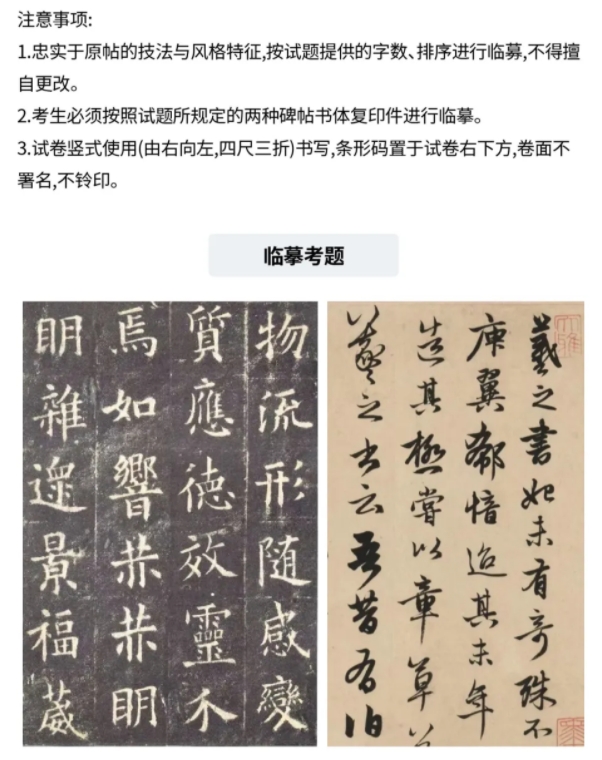 注意事项:
1.忠实于原帖的技法与风格特征,按试题提供的字数、排序进行临募,不得擅
自更改。
2.考生必须按照试题所规定的两种碑帖书体复印件进行临摹。
3.试卷竖式使用(由右向左,四尺三折)书写,条形码置于试卷右下方,卷面不
署名,不铃印。
临摹考题
物流形随感變
質應德效靈介
焉如響赫赫明
明雜遝景福葳
羲之書始未有奇殊不
庾翼郗愔迨其末年
造其極嘗以章草
羲之書云吾昔有伯